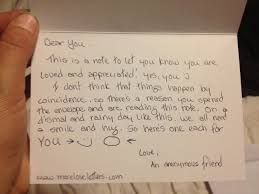 Dear You...
This is a note to let you know you are
loved and appreciated, yes, you :)
I dont think that things happen by
coincidence, so there's a reason you opened
the envelope and are reading this note. On a
dismal and rainy day like this, we all need
a smile and hug. So here's one each for
YOU →
Love,
An anonymous friend
www.moreloveletters.com